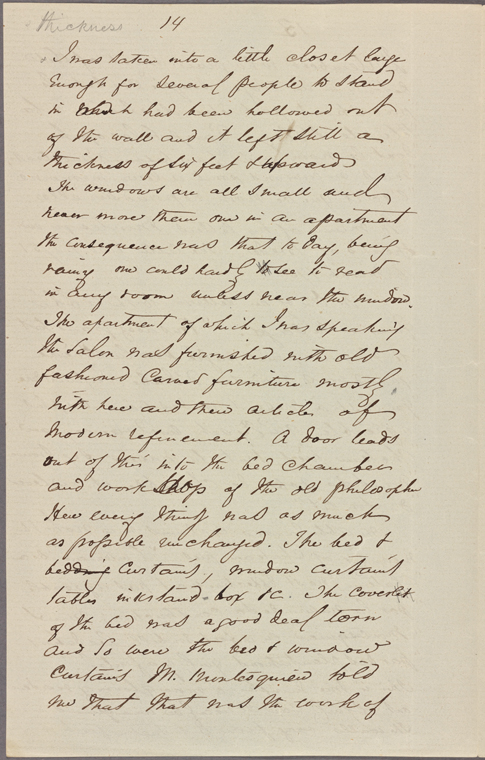 thickness 14
I was taken into a little closet large
enough for several people to stand
in which had been hollowed out
of the wall and it left still a
thickness of six feet & upwards
The windows are all small and
never more than one in an apartment
the consequence was that to day, being
rainy one could hardly see to read
in any room unless near the window.
The apartment of which I was speaking
the Salon was furnished with old
fashioned Carved furniture mostly
with here and there articles of
Modern refinement. A door leads
out of this into the bed chamber
and work shop of the old philosopher
Here every thing was as much
as possible unchanged. The bed &
bedding Curtains, window curtains
tables inkstand box &c. The Coverlet
of the bed was a good deal torn
and So were the bed & window
Curtains M. Montesquieu told
me that that was the work of